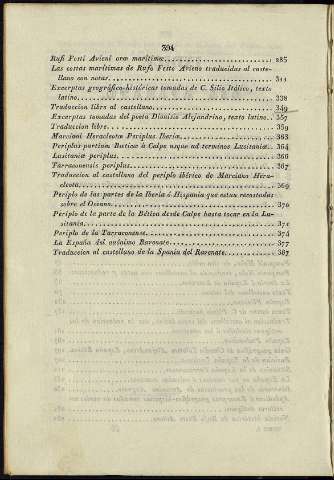 394
Rufi Festi Avieni oræ maritimæ. 285
Las costas marítimas de Rufo Festo Avieno traducidas al caste-
llano con notas. 311
Excerptas geográfico-históricas tomadas de C. Silio Itálico, texto
latino. 338
Traduccion libre al castellano. 349
Excerptas del poeta Dionisio Alejandrino, texto latino. 357
Traduccion libre. 359
Marciani Heracleotæ Periplus Iberiæ. 363
Periplus partium Bæticæ à Calpe usque ad terminos Lusitaniæ. 364
Lusitaniæ periplus. 366
Tarraconensis periplus. 367
Traduccion al castellano del periplo ibérico de Marciano Hera-
cleota. 369
Periplo de las partes de la Iberia ó Hispania que estan recostadas
sobre el Occeano. 370
Periplo de la parte de la Bética desde Calpe hasta tocar en la Lu-
sitania. 371
Periplo de la Tarraconense. 374
La España del anónimo Ravenate. 377
Traduccion al castellano de la Spania del Ravenate. 387